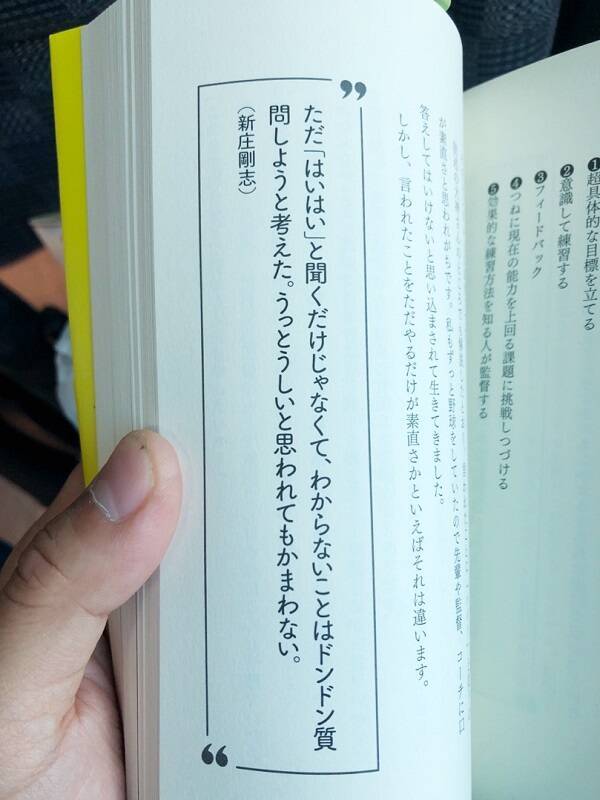 ❶超具体的な目標を立てる
❷意識して練習する
❸フィードバック
❹つねに現在の能力を上回る課題に挑戦しつづける
❺効果的な練習方法を知る人が監督する
が素直さと思われがちです。私もずっと野球をしていたので先輩や監督、コーチに口
答えしてはいけないと思い込まされて生きてきました。
しかし、言われたことをただやるだけが素直さかといえばそれは違います。
ただ「はいはい」と聞くだけじゃなくて、わからないことはドンドン質
問しようと考えた。うっとうしいと思われてもかまわない。
（新庄剛志）